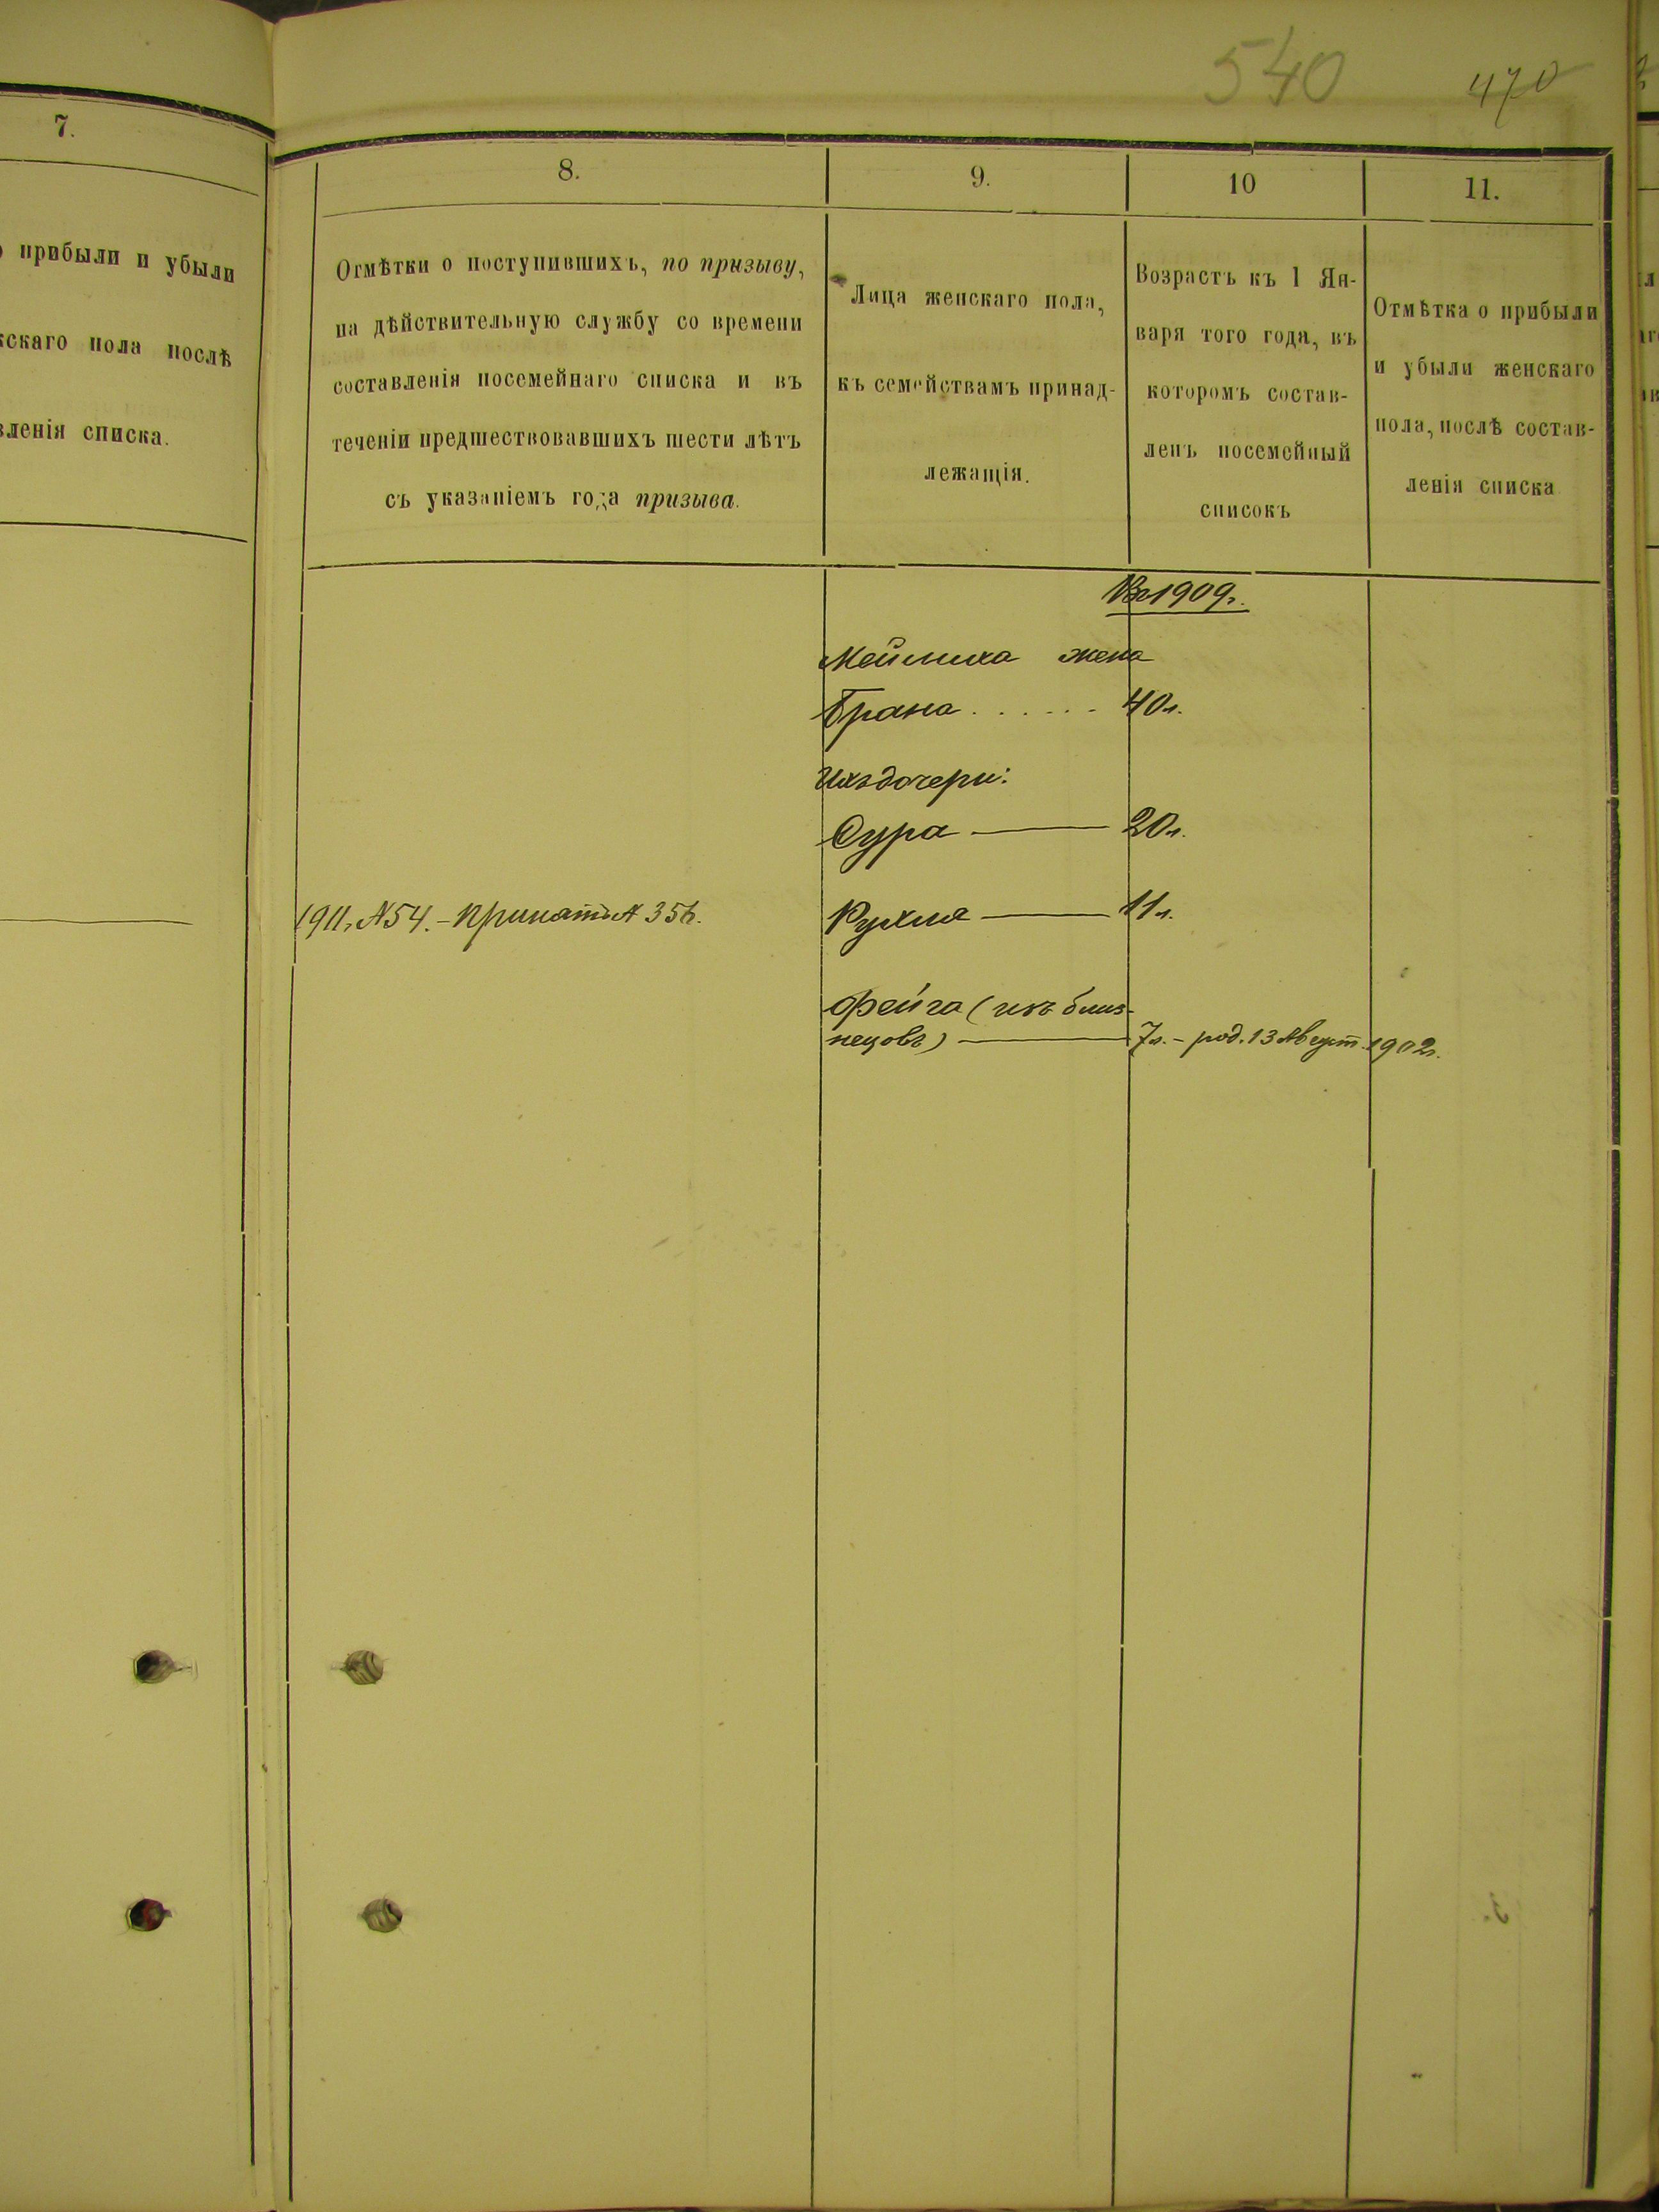 540 470
7.
прибыли и убыли
скаго пола послѣ
вленія списка.
8.
Отмѣтки о поступившихъ, по призыву,
на дѣйствительную службу со времени
составленія посемейнаго списка и въ
теченіи предшествовавшихъ шести лѣтъ
съ указаніемъ года призыва.
1911 г. № 54. – Принятъ № 356.
9.
Лица женскаго пола,
къ семействамъ принад-
лежащія.
10
Возрастъ къ 1 Ян-
варя того года, въ
которомъ состав-
ленъ посемейный
списокъ
11.
Отмѣтка о прибыли
и убыли женскаго
пола, послѣ состав-
ленія списка
Въ 1909 г.
Мейлиха жена
Брана . . . . . . 40 л.
Ихъ дочери:
Сура — 20 л.
Рухля — 11 л.
Фейга (изъ близ-
нецовъ) — 7 л. – род. 13 Август. 1902 г.